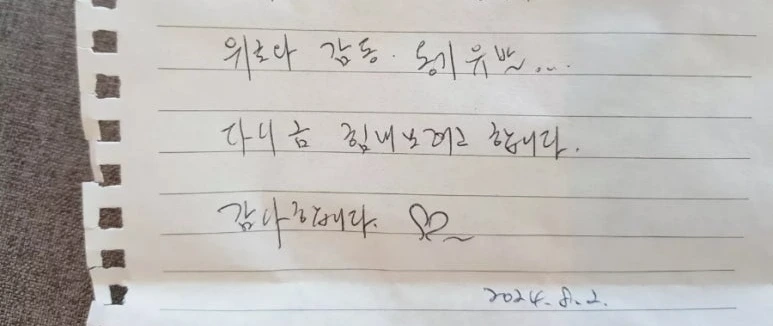 위로와 감동. 동기 유발....
다시금 힘내보려고 합니다.
감사합니다. ♡~
2024. 8. 2.